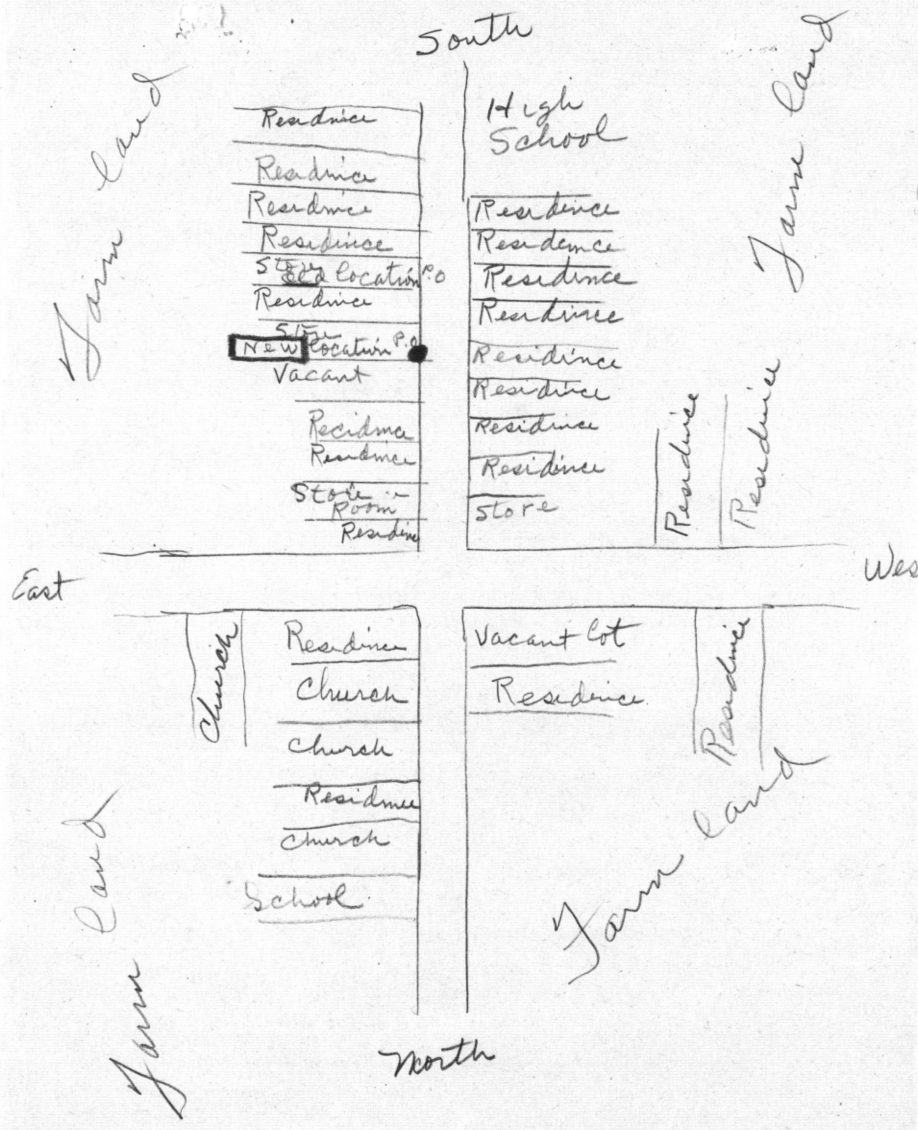 South
Farm land
Residence
Residence
Residence
Residence
Store
Old location P.O
Residence
Store
New location P.O
Vacant
Recidence
Residence
Store
Room
Residence
High
School
Residence
Residemce
Residence
Residence
Residence
Residence
Residence
Residence
Store
Residence
Residence
Farm land
East
Wes
Church
Residence
Church
Church
Residence
Church
School
Vacant lot
Residence
Residence
Farm land
Farm land
North